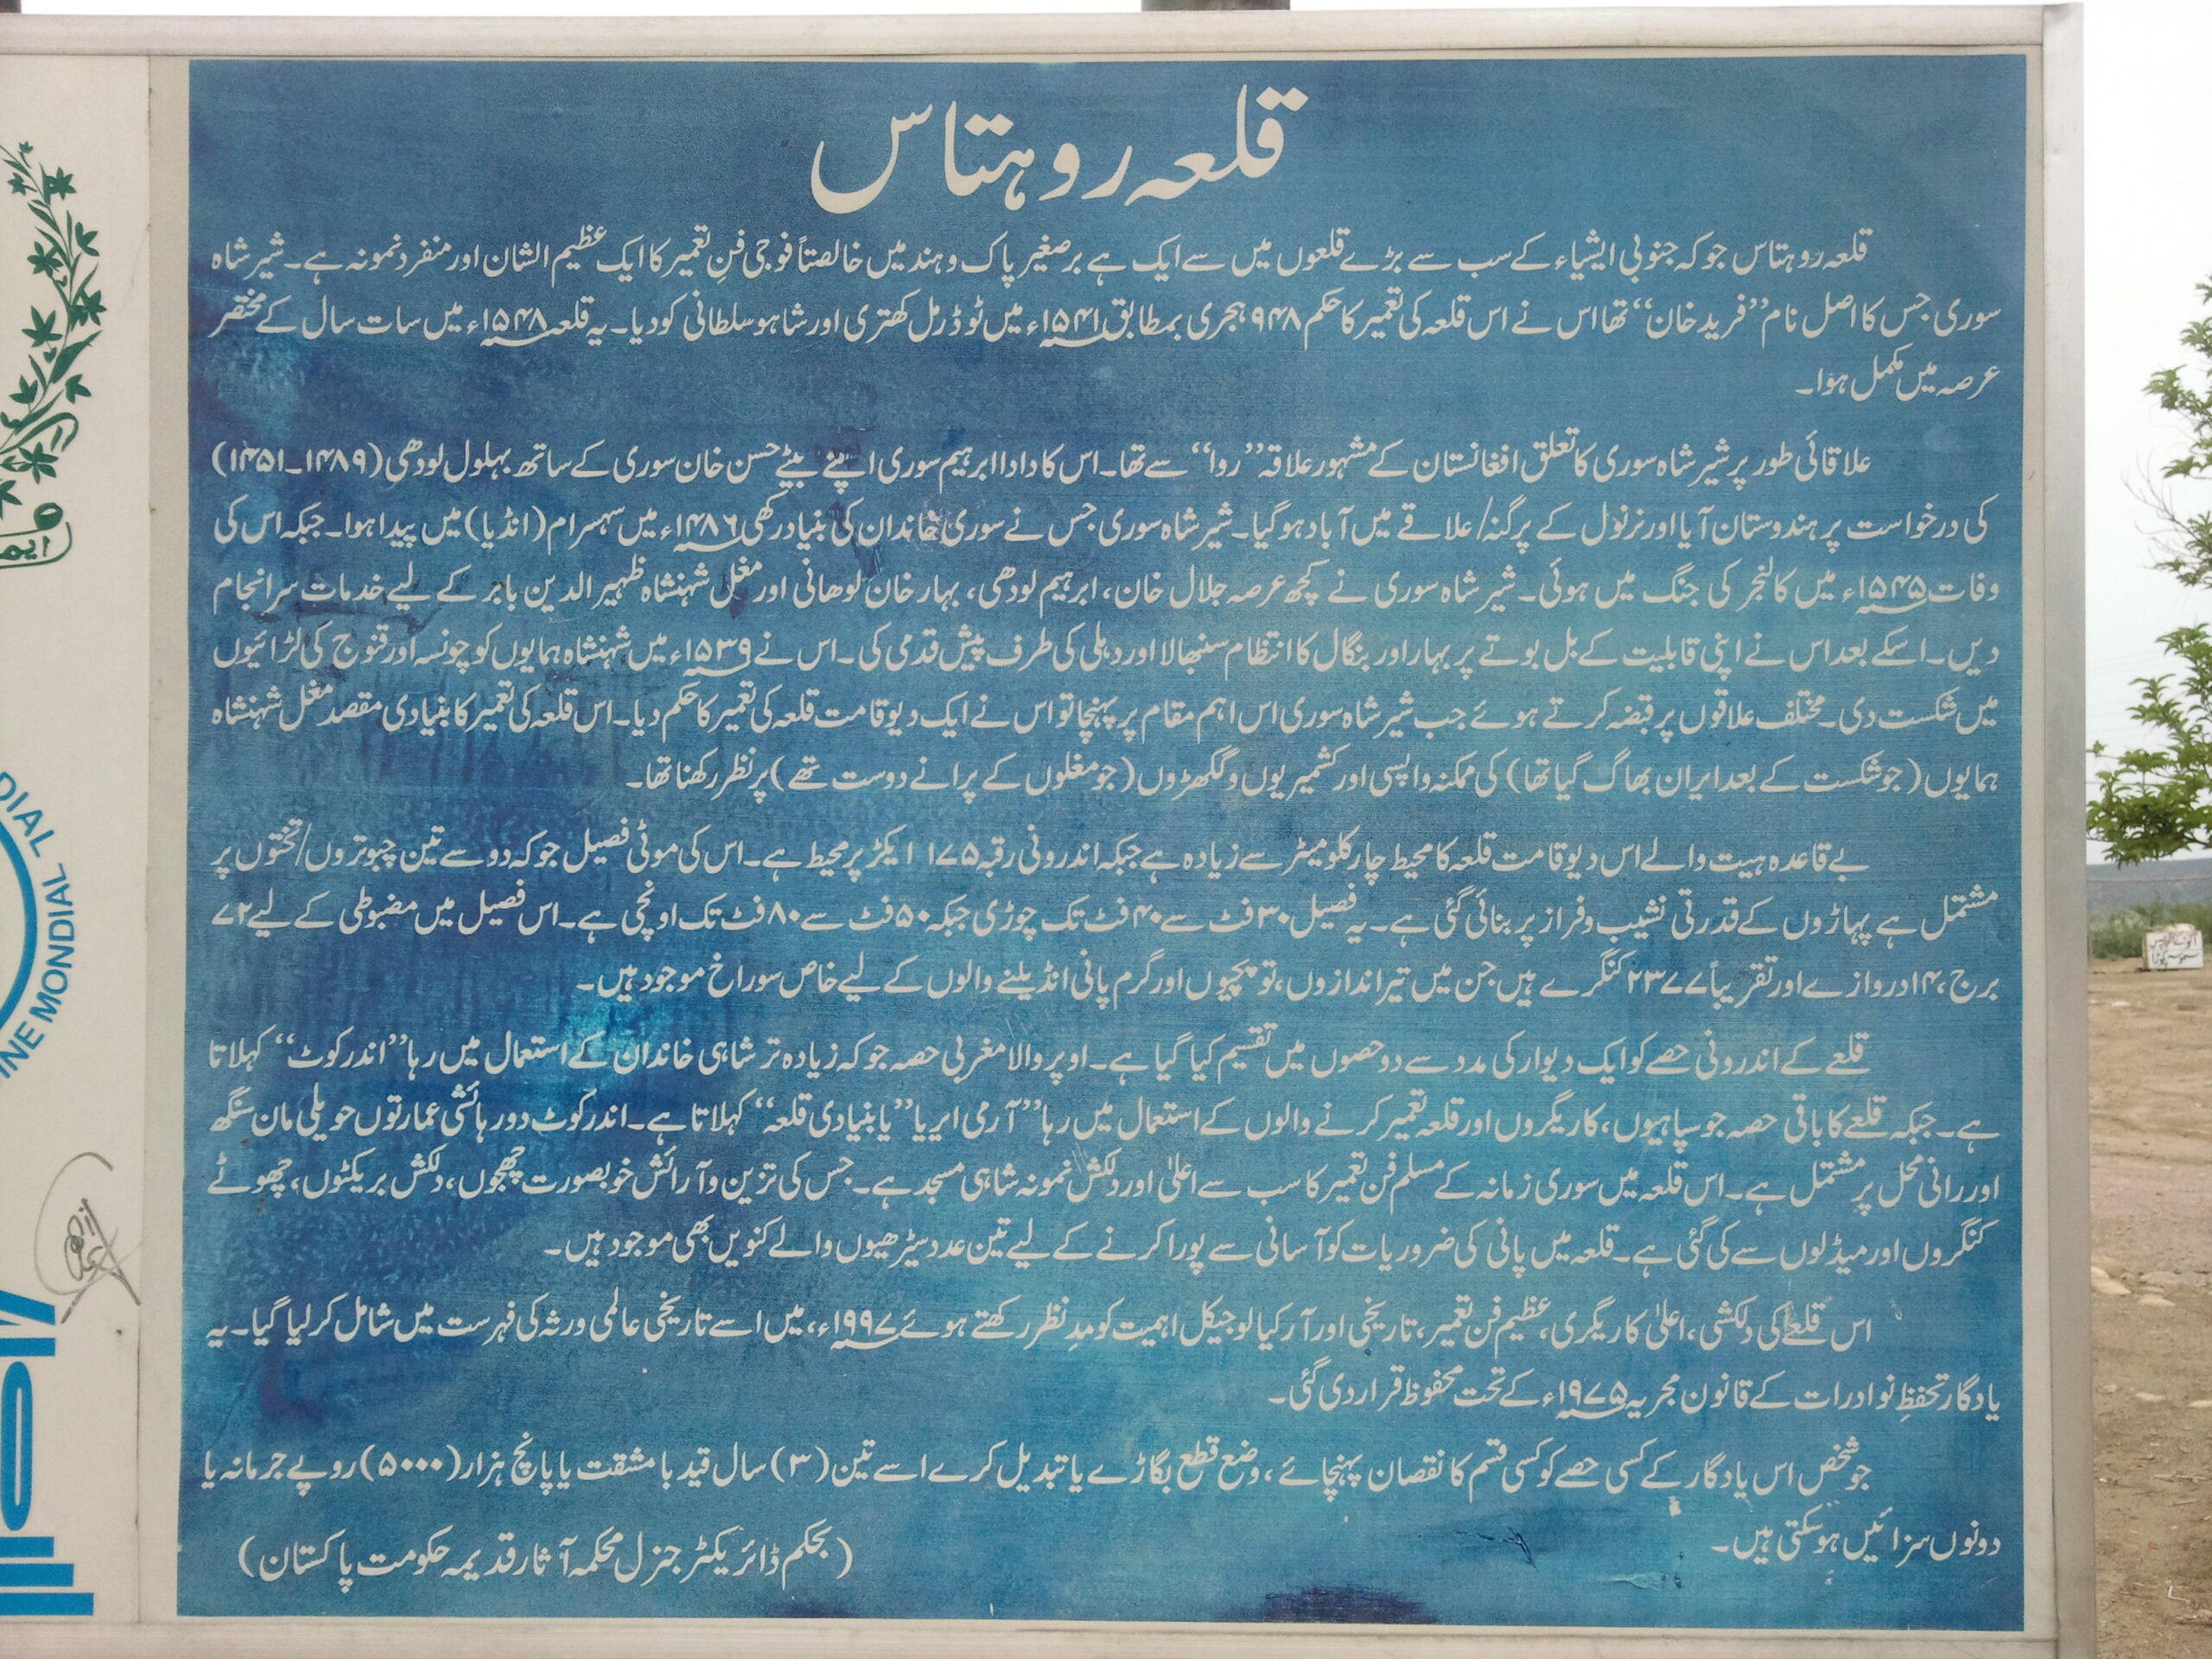 قلعہ روہتاس
قلعہ روہتاس جو کہ جنوبی ایشیاء کے سب سے بڑے قلعوں میں سے ایک ہے برصغیر پاک و ہند میں خالصتاً فوجی فنِ تعمیر کا ایک عظیم الشان اور منفرد نمونہ ہے۔ شیر شاہ
سوری جس کا اصل نام ”فرید خان“ تھا اس نے اس قلعہ کی تعمیر کا حکم ۹۴۸ ہجری بمطابق ۱۵۴۱ء میں ٹوڈرمل کھتری اور شاہو سلطانی کو دیا۔ یہ قلعہ ۱۵۴۸ء میں سات سال کے مختصر
عرصہ میں مکمل ہوا۔
علاقائی طور پر شیر شاہ سوری کا تعلق افغانستان کے مشہور علاقہ ”روا“ سے تھا۔ اس کا دادا ابرہیم سوری اپنے بیٹے حسن خان سوری کے ساتھ بہلول لودھی (۱۴۸۹۔۱۴۵۱)
کی درخواست پر ہندوستان آیا اور نرنول کے پرگنہ/علاقے میں آباد ہو گیا۔ شیر شاہ سوری جس نے سوری خاندان کی بنیاد رکھی ۱۴۸۶ء میں سہسرام (انڈیا) میں پیدا ہوا۔ جبکہ اس کی
وفات ۱۵۴۵ء میں کالنجر کی جنگ میں ہوئی۔ شیر شاہ سوری نے کچھ عرصہ جلال خان، ابرہیم لودھی، بہار خان لوھانی اور مغل شہنشاہ ظہیر الدین بابر کے لیے خدمات سرانجام
دیں۔ اسکے بعد اس نے اپنی قابلیت کے بل بوتے پر بہار اور بنگال کا انتظام سنبھالا اور دہلی کی طرف پیش قدمی کی۔ اس نے ۱۵۳۹ء میں شہنشاہ ہمایوں کو چونسہ اور قنوج کی لڑائیوں
میں شکست دی۔ مختلف علاقوں پر قبضہ کرتے ہوئے جب شیر شاہ سوری اس اہم مقام پر پہنچا تو اس نے ایک دیوقامت قلعہ کی تعمیر کا حکم دیا۔ اس قلعہ کی تعمیر کا بنیادی مقصد مغل شہنشاہ
ہمایوں (جو شکست کے بعد ایران بھاگ گیا تھا) کی ممکنہ واپسی اور کشمیریوں و گکھڑوں (جو مغلوں کے پرانے دوست تھے) پر نظر رکھنا تھا۔
بے قاعدہ ہیت والے اس دیوقامت قلعہ کا محیط چار کلومیٹر سے زیادہ ہے جبکہ اندرونی رقبہ ۱۷۵ ایکڑ پر محیط ہے۔ اس کی موٹی فصیل جو کہ دو سے تین چبوتروں/تختوں پر
مشتمل ہے پہاڑوں کے قدرتی نشیب و فراز پر بنائی گئی ہے۔ یہ فصیل ۳۰ فٹ سے ۴۰ فٹ تک چوڑی جبکہ ۵۰ فٹ سے ۸۰ فٹ تک اونچی ہے۔ اس فصیل میں مضبوطی کے لیے ۷۲
برج، ۱۴ دروازے اور تقریباً ۲۳۷۷ کنگرے ہیں جن میں تیر اندازوں، توپچیوں اور گرم پانی انڈیلنے والوں کے لیے خاص سوراخ موجود ہیں۔
قلعے کے اندرونی حصے کو ایک دیوار کی مدد سے دو حصوں میں تقسیم کیا گیا ہے۔ اوپر والا مغربی حصہ جو کہ زیادہ تر شاہی خاندان کے استعمال میں رہا ”اندرکوٹ“ کہلاتا
ہے۔ جبکہ قلعے کا باقی حصہ جو سپاہیوں، کاریگروں اور قلعہ تعمیر کرنے والوں کے استعمال میں رہا ”آرمی ایریا“ یا ”بنیادی قلعہ“ کہلاتا ہے۔ اندرکوٹ دو رہائشی عمارتوں حویلی مان سنگھ
اور رانی محل پر مشتمل ہے۔ اس قلعہ میں سوری زمانہ کے مسلم فن تعمیر کا سب سے اعلیٰ اور دلکش نمونہ شاہی مسجد ہے۔ جس کی تزین و آرائش خوبصورت چھجوں، دلکش بریکٹوں، چھوٹے
کنگروں اور میڈلوں سے کی گئی ہے۔ قلعہ میں پانی کی ضروریات کو آسانی سے پورا کرنے کے لیے تین عدد سیڑھیوں والے کنویں بھی موجود ہیں۔
اس قلعے کی دلکشی، اعلیٰ کاریگری، عظیم فن تعمیر، تاریخی اور آرکیالوجیکل اہمیت کو مدِنظر رکھتے ہوئے ۱۹۹۷ء، میں اسے تاریخی عالمی ورثہ کی فہرست میں شامل کر لیا گیا۔ یہ
یادگار تحفظِ نوادرات کے قانون مجریہ ۱۹۷۵ء کے تحت محفوظ قرار دی گئی۔
جو شخص اس یادگار کے کسی حصے کو کسی قسم کا نقصان پہنچائے، وضع قطع بگاڑے یا تبدیل کرے اسے تین (۳) سال قید با مشقت یا پانچ ہزار (۵۰۰۰) روپے جرمانہ یا
دونوں سزائیں ہو سکتی ہیں۔
(بحکم ڈائریکٹر جنرل محکمہ آثار قدیمہ حکومت پاکستان)
DIAL
INE MONDIAL